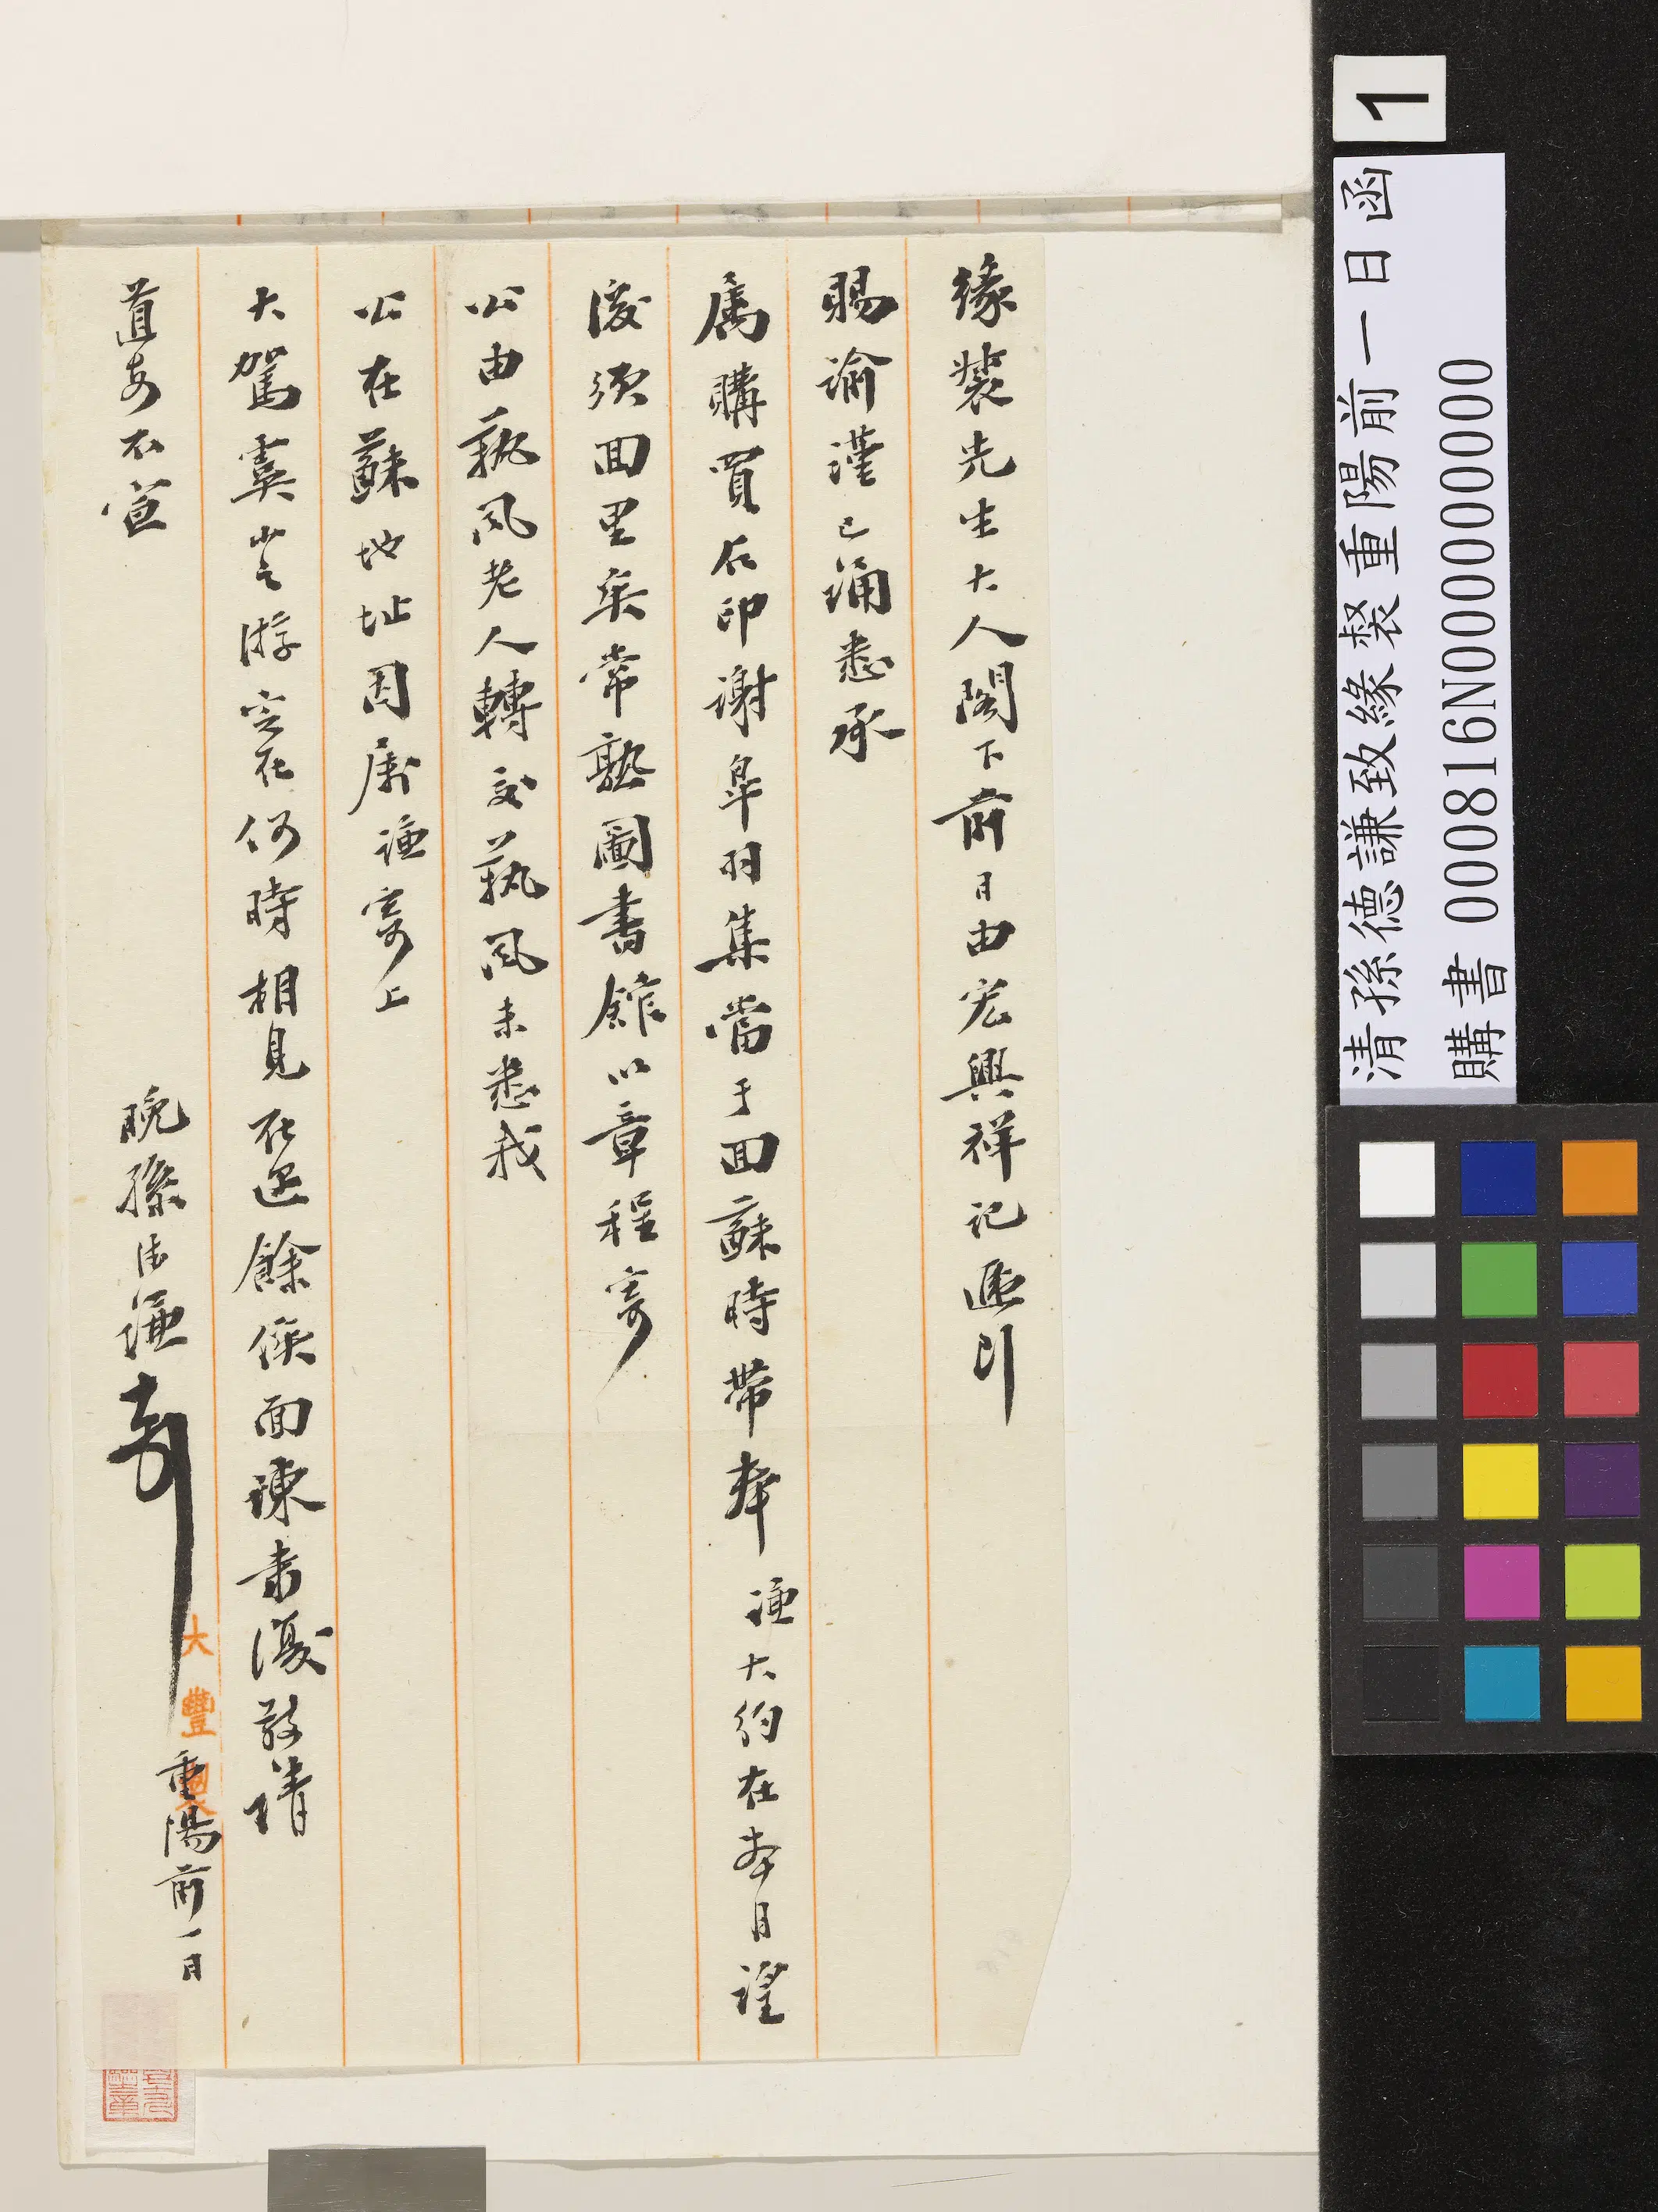 緣裻先生大人閣下前日由宏興祥記遞到
賜諭謹已誦悉承
屬購買石印謝皋羽集當于回蘇時帶奉謙大約在本月望
後須回里矣常熟圖書館以章程寄
公由執風老人轉交執風未悉我
公在蘇地址因屬謙寄上
大駕虞山之游定在何時相見在邇餘俟面陳肅復敬請
道安不宣
晚孫德謙
重陽前一日
大豐
1
清孫德謙致緣裻重陽前一日函
購書 000816N000000000